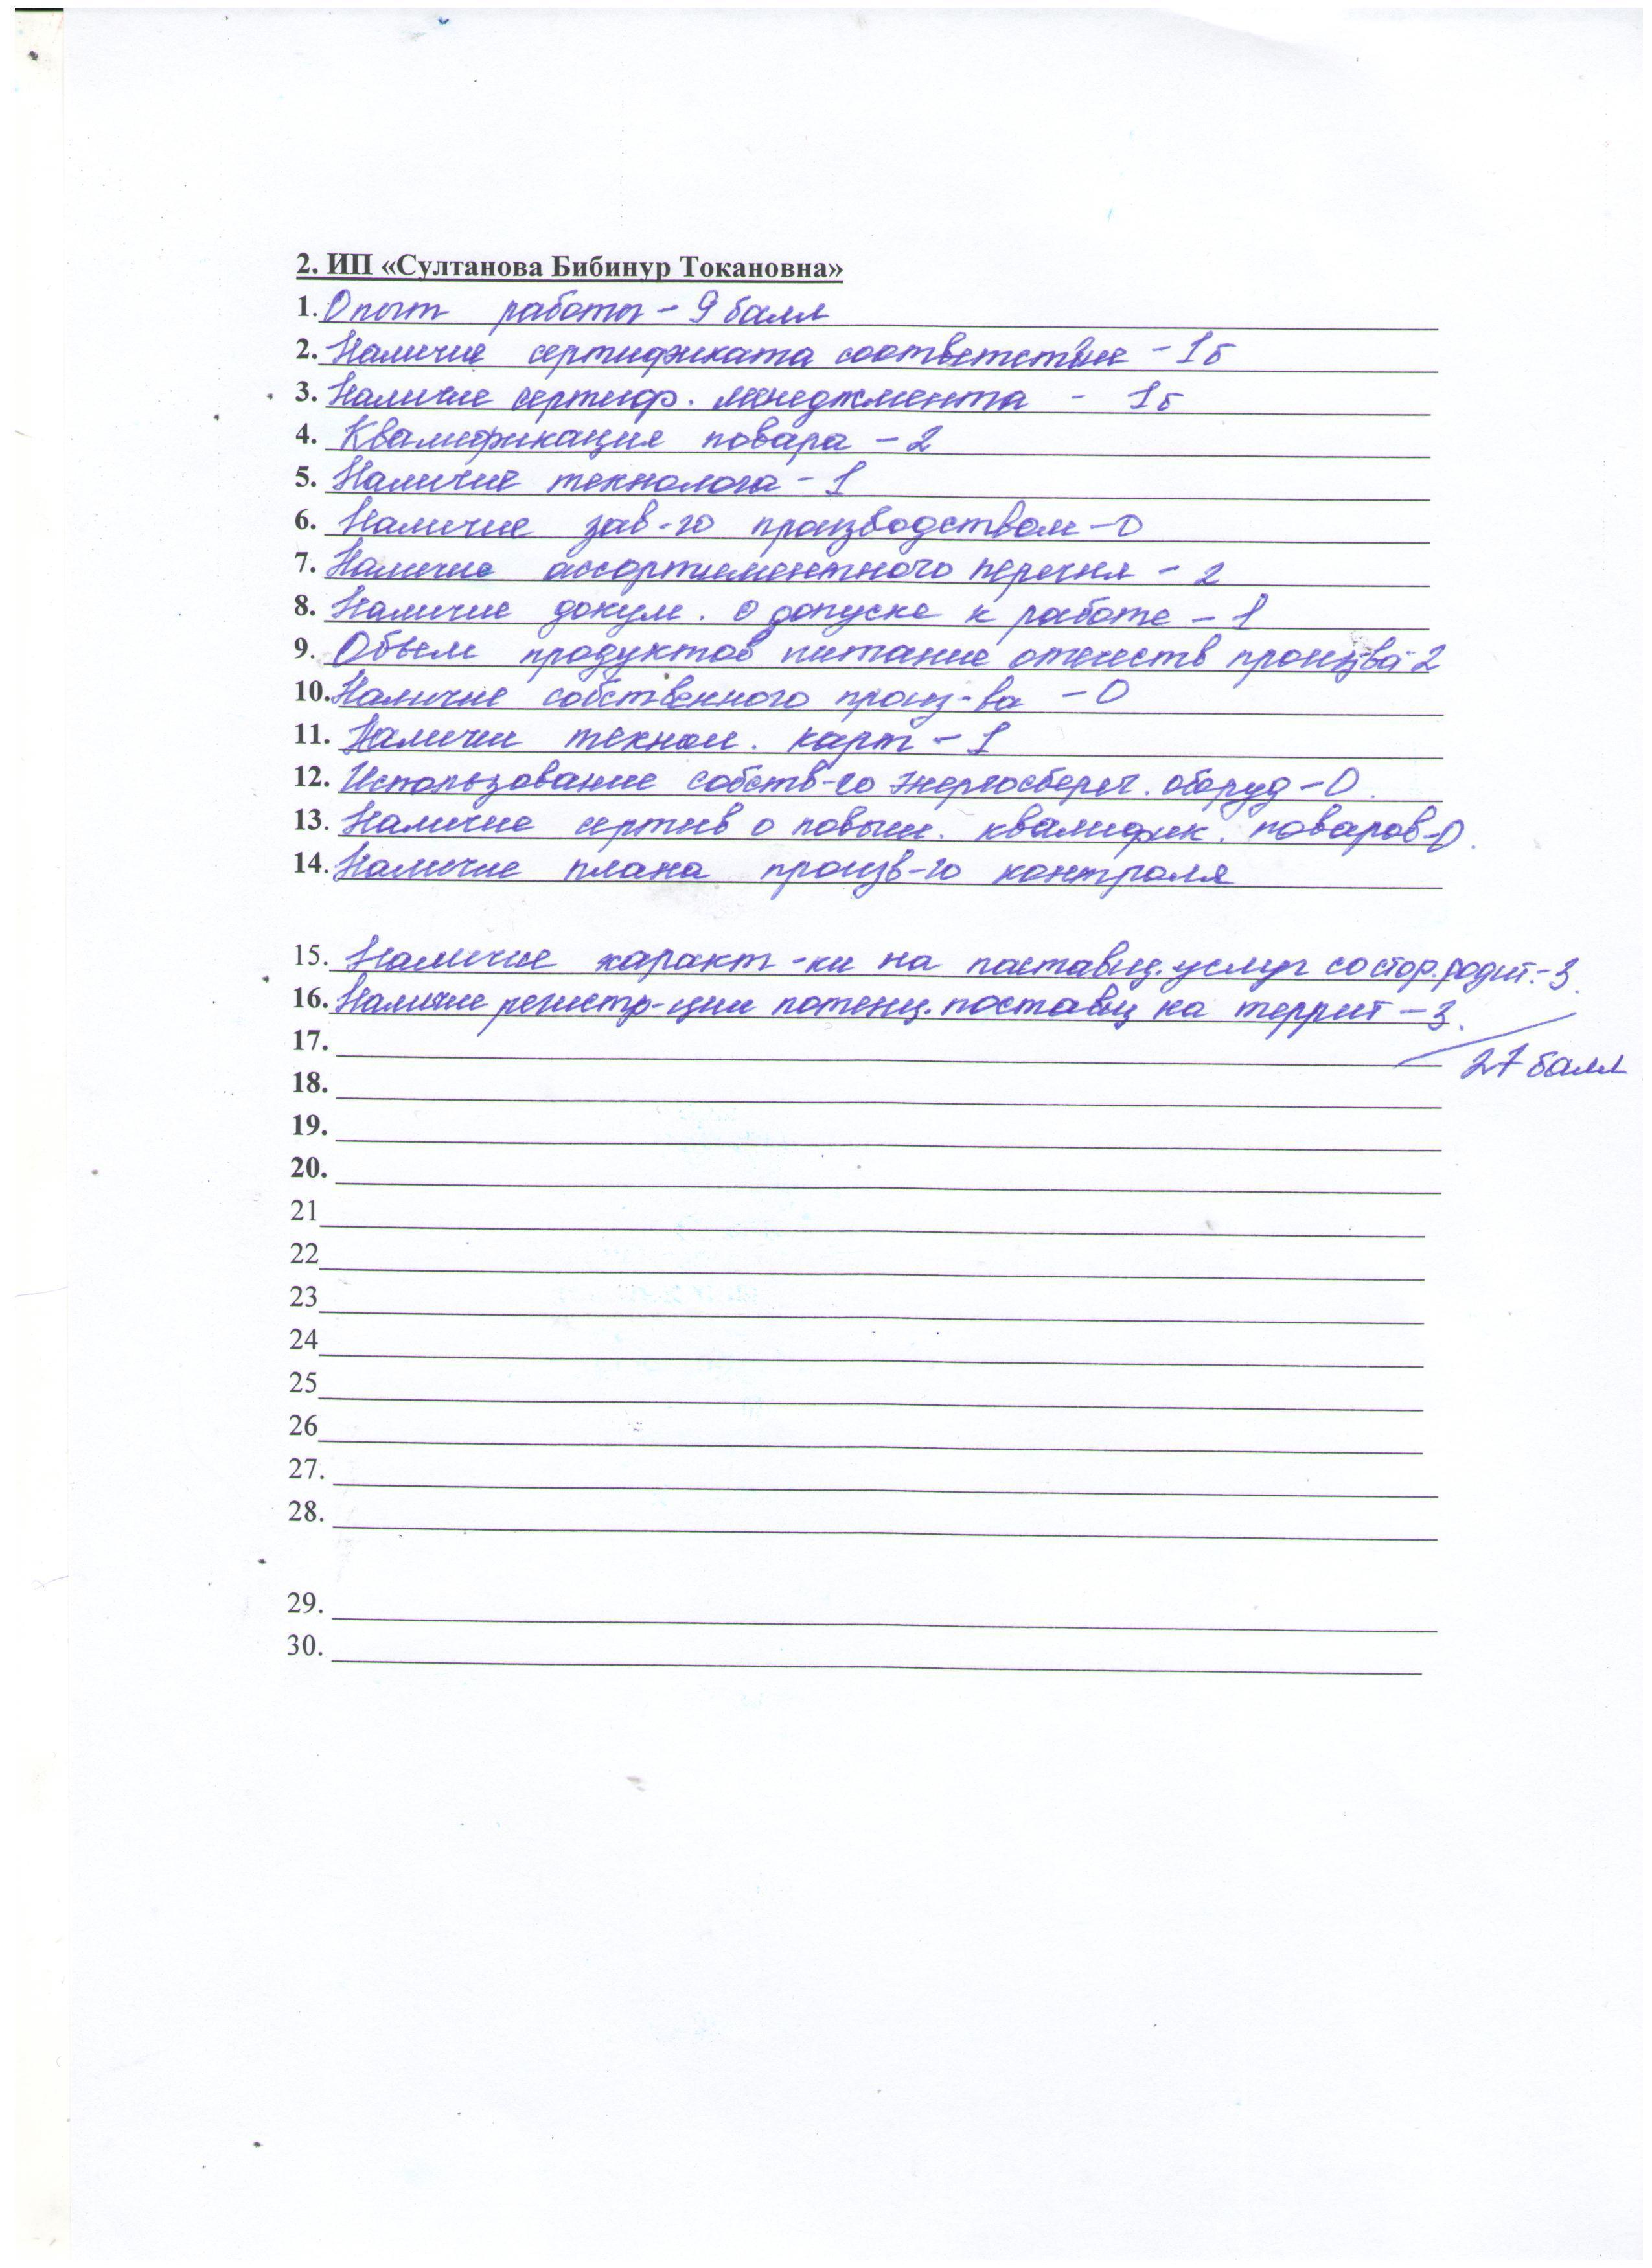 2. ИП «Султанова Бибинур Токановна»
1. Опыт работы - 9 балл
2. Наличие сертификата соответствие - 1б
3. Наличие сертиф. менеджмента - 1б
4. Квалификация повара - 2
5. Наличие технолога - 1
6. Наличие зав-го производством - 0
7. Наличие ассортиментного перечня - 2
8. Наличие докум. о допуске к работе - 1
9. Объем продуктов питание отечеств произ-ва - 2
10. Наличие собственного произ-ва - 0
11. Наличии технол. карт - 1
12. Использование собств-го энергосберег. оборуд - 0.
13. Наличие сертив о повыш. квалифик. поваров - 0.
14. Наличие плана произв-го контроля
15. Наличие характ-ки на поставщ. услуг со стор. родит. - 3.
16. Наличие регистр-ции потенц. поставщ на террит - 3.
17.
27 балл
18.
19.
20.
21
22
23
24
25
26
27.
28.
29.
30.